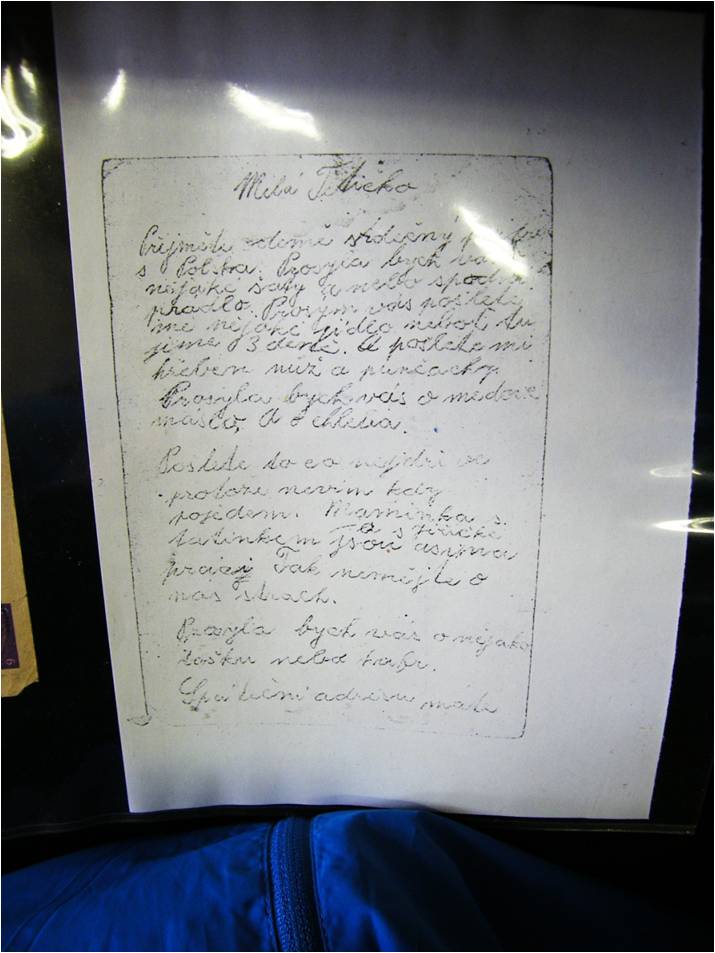 Milá Tetičko
Přijměte odemě srdečný
s Polska. Prosyla bych vás
nějaké šaty a nebo spodní
pradlo. Prosým vás pošlete
mě nějaké jídlo neboť tu
jsme 3 dení. A pošlete mi
hřeben nůž a punčachy.
Prosyla bych vás o medové
máslo, A o chleba.
Poslete to co nejdří ve
protože nevim kdy
pojedem. Maminka s
tatínkem a s
jsou asyma
práci Tak nemějte o
nas strach.
Prosyla bych vás o nějako
tašku nebo kufr.
adresu máte